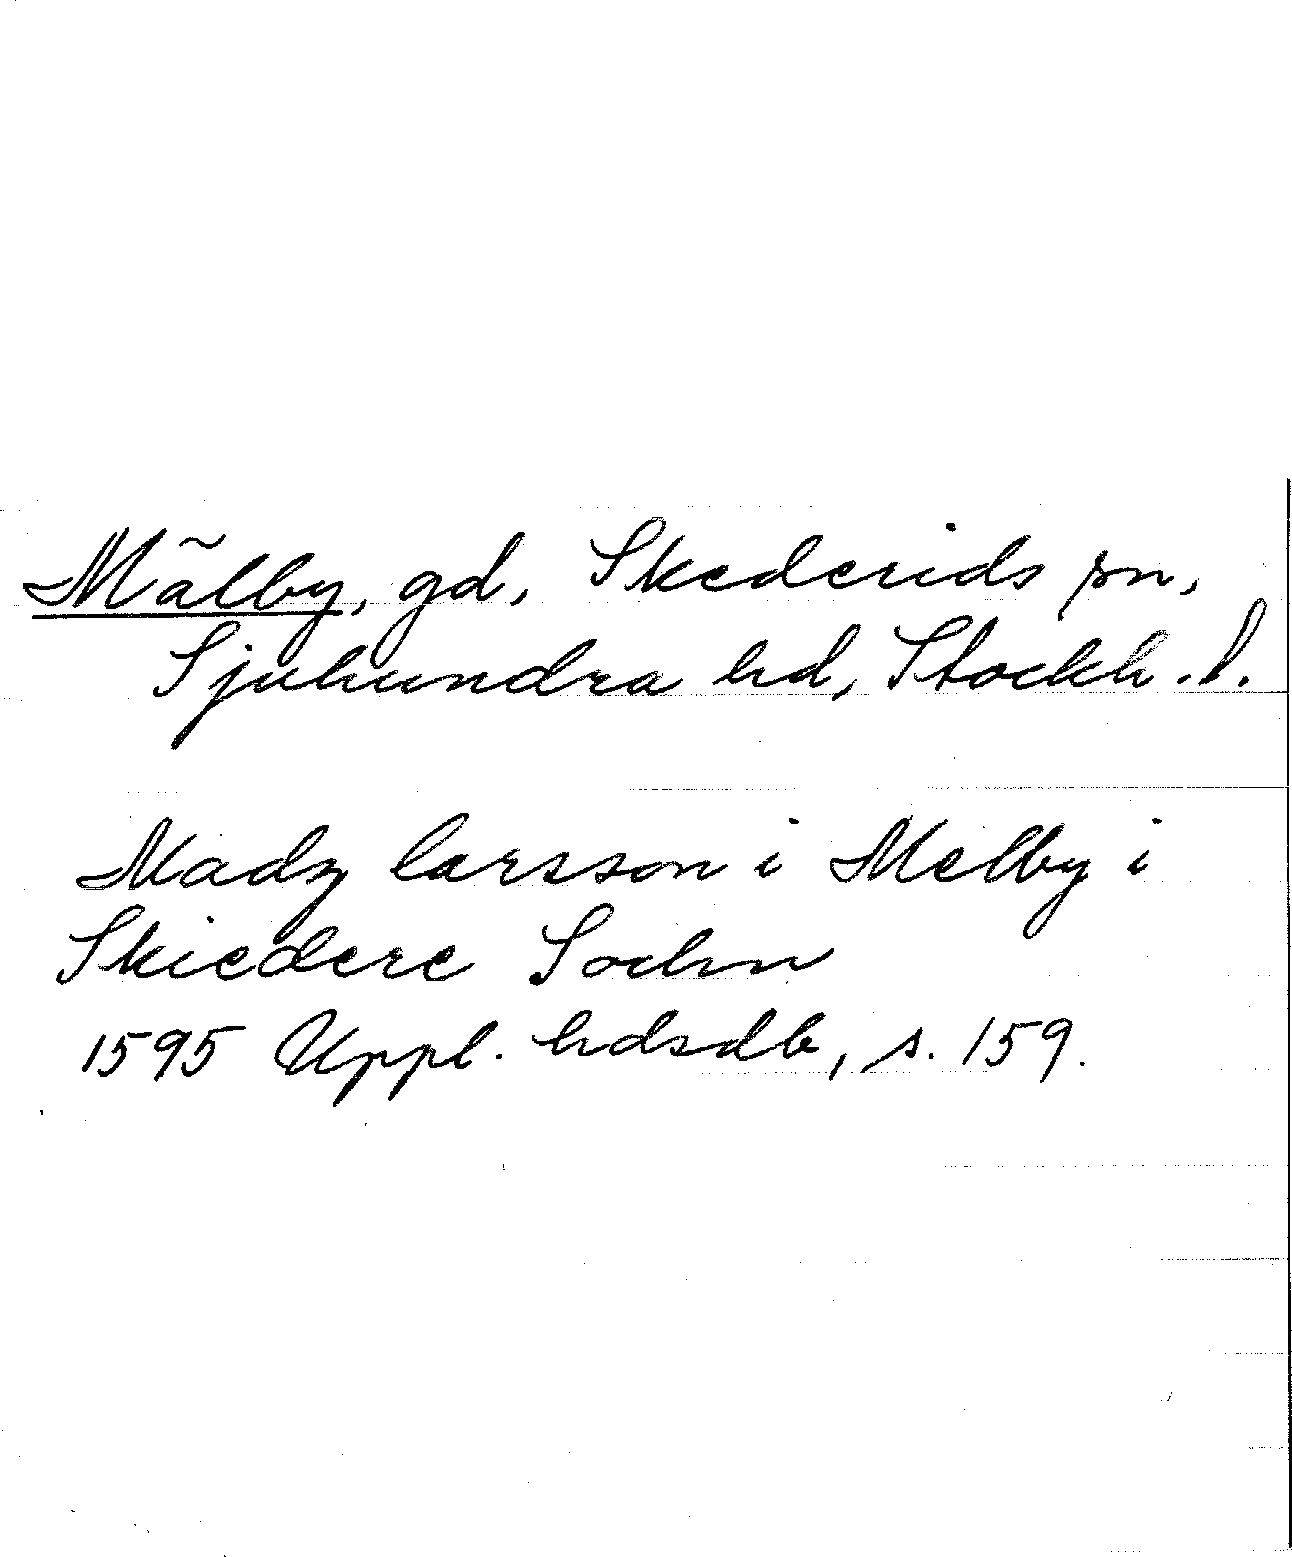 Mälby, gd, Skederids sn,
Sjuhundra hd, Stockh. l.
Madz larsson i Melby i
Skiedere Sochn
1595 Uppl. hdsdb, s. 159.